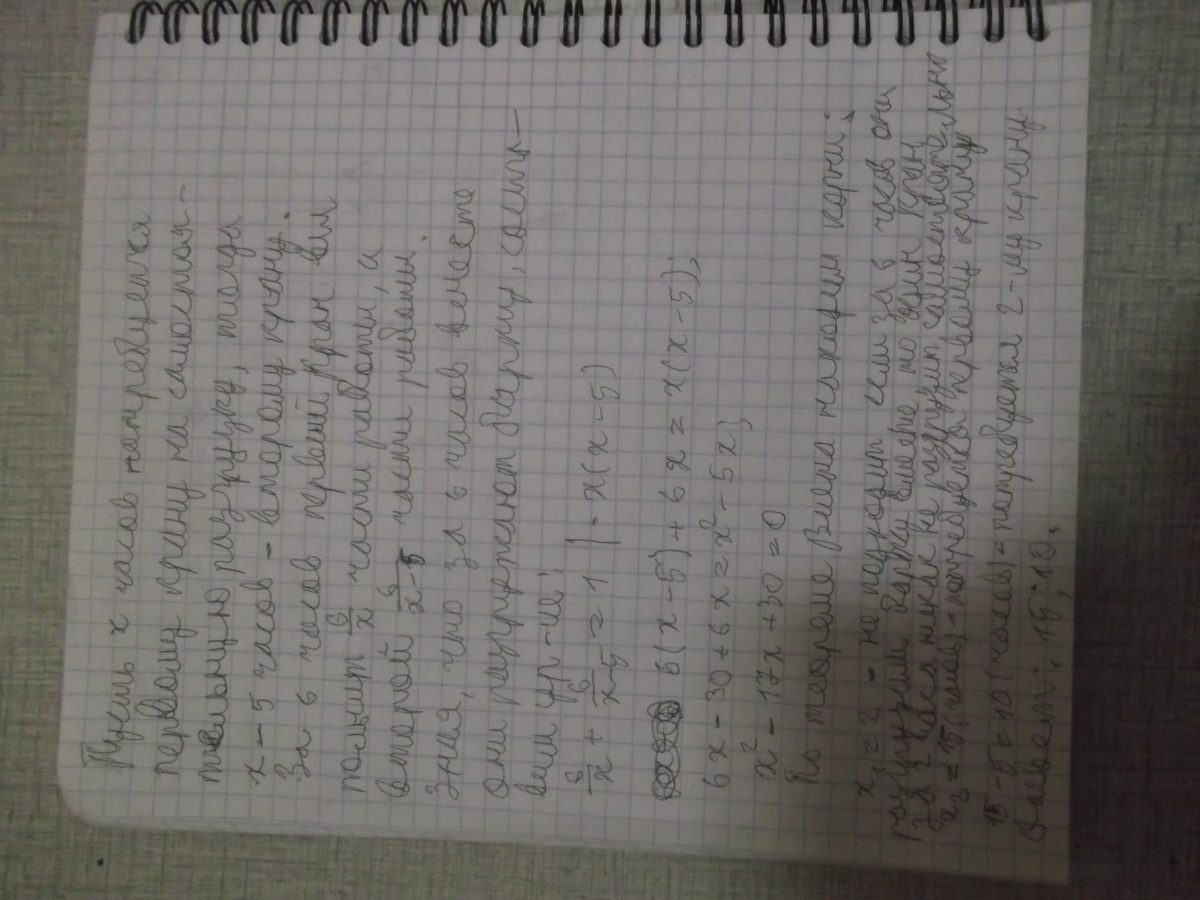 Пусть x часов потребуется
первому крану на самостоя-
тельную разгрузку, тогда
x - 5 часов - второму крану.
За 6 часов первый кран вы
полнит 6/x части работы, а
второй 6/x-5 части работы.
Зная, что за 6 часов вместе
они разгружают баржу, соста-
вим ур-ие:
6/x + 6/x-5 = 1 | · x(x-5)
6(x-5)+6x = x(x-5);
6x - 30 + 6x = x² - 5x;
x² - 17x + 30 = 0
По теореме Виета находим корни:
x₁ = 2 - не подходит если за 6 часов они
разгрузили баржу вместе, то один кран
за 2 часа никак не разгрузит самостоятельно
x₂ = 15 (часов) - потребуется первому крану
15-5=10 (часов) - потребуется 2-му крану.
Ответ: 15; 10.